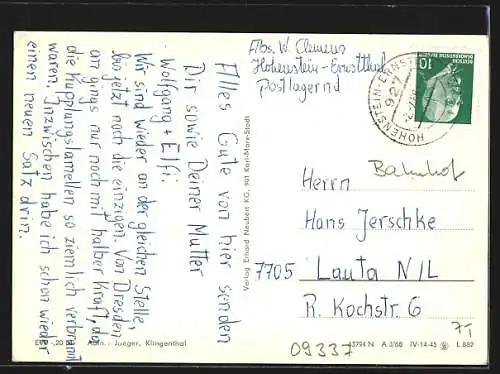 Abs. W. Clemens
Hohenstein-Ernstthal
Postlagernd
Alles Gute von hier senden
Dir sowie Deiner Mutter
Wolfgang + Elfi.
Wir sind wieder an der gleichen Stelle,
bis jetzt noch die einzigen. Von Dresden
an gings nur noch mit halber Kraft, da
die Kupplungslamellen so ziemlich verbrannt
waren. Inzwischen habe ich schon wieder
einen neuen Satz drin.
Verlag Erhard Neubert KG, 901 Karl-Marx-Stadt
HOHENSTEIN-ERNSTTHAL
927
DEUTSCHE
DEMOKRATISCHE REPUBLIK
10
Bahnhof
Herrn
Hans Jerschke
7705 Lauta N/L
R. Kochstr. 6
EVP -,20 M Aufn.: Jueger, Klingenthal
43794 N A 3/68 IV-14-45 L 882
09337